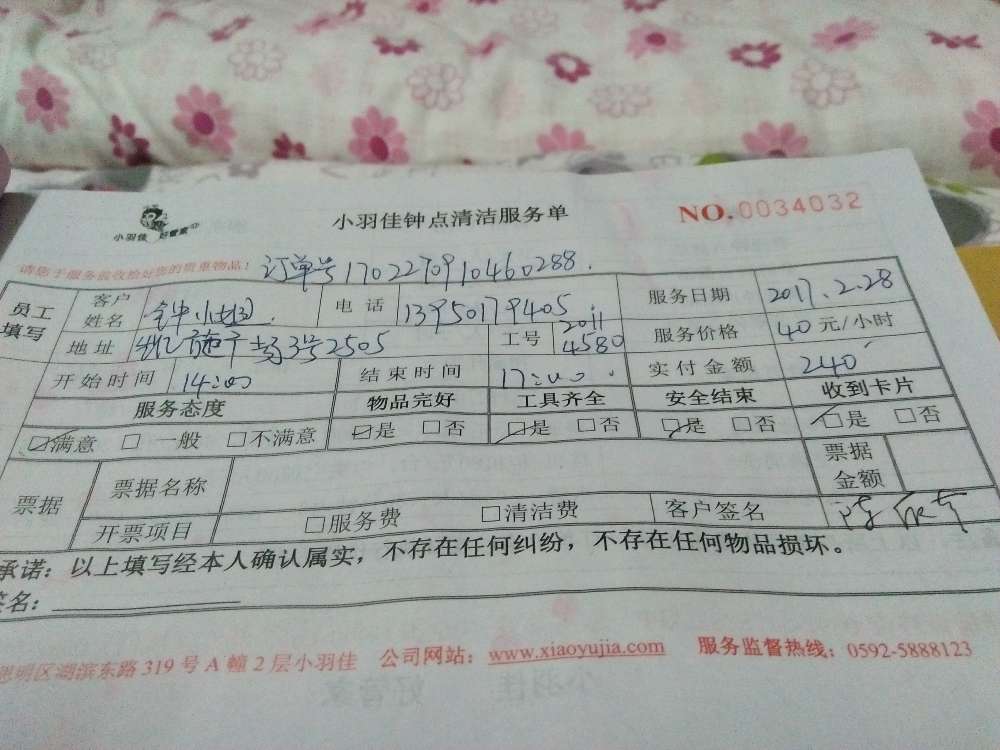 小羽佳 好管家
小羽佳钟点清洁服务单
NO.0034032
请您于服务前收拾好您的贵重物品！ 订单号1702270910460288.
员工填写 客户姓名 钟小姐 电话 13950179405 服务日期 2017.2.28
地址 3号2505 工号 2011 4580 服务价格 40元/小时
开始时间 14:00 结束时间 17:00. 实付金额 240
服务态度 物品完好 工具齐全 安全结束 收到卡片
☑满意 □一般 □不满意 ☑是 □否 ☑是 □否 ☑是 □否 ☑是 □否
票据 票据名称 票据金额
开票项目 □服务费 □清洁费 客户签名
承诺：以上填写经本人确认属实，不存在任何纠纷，不存在任何物品损坏。
签名：
思明区湖滨东路319号A幢2层小羽佳 公司网站：www.xiaoyujia.com 服务监督热线：0592-5888123